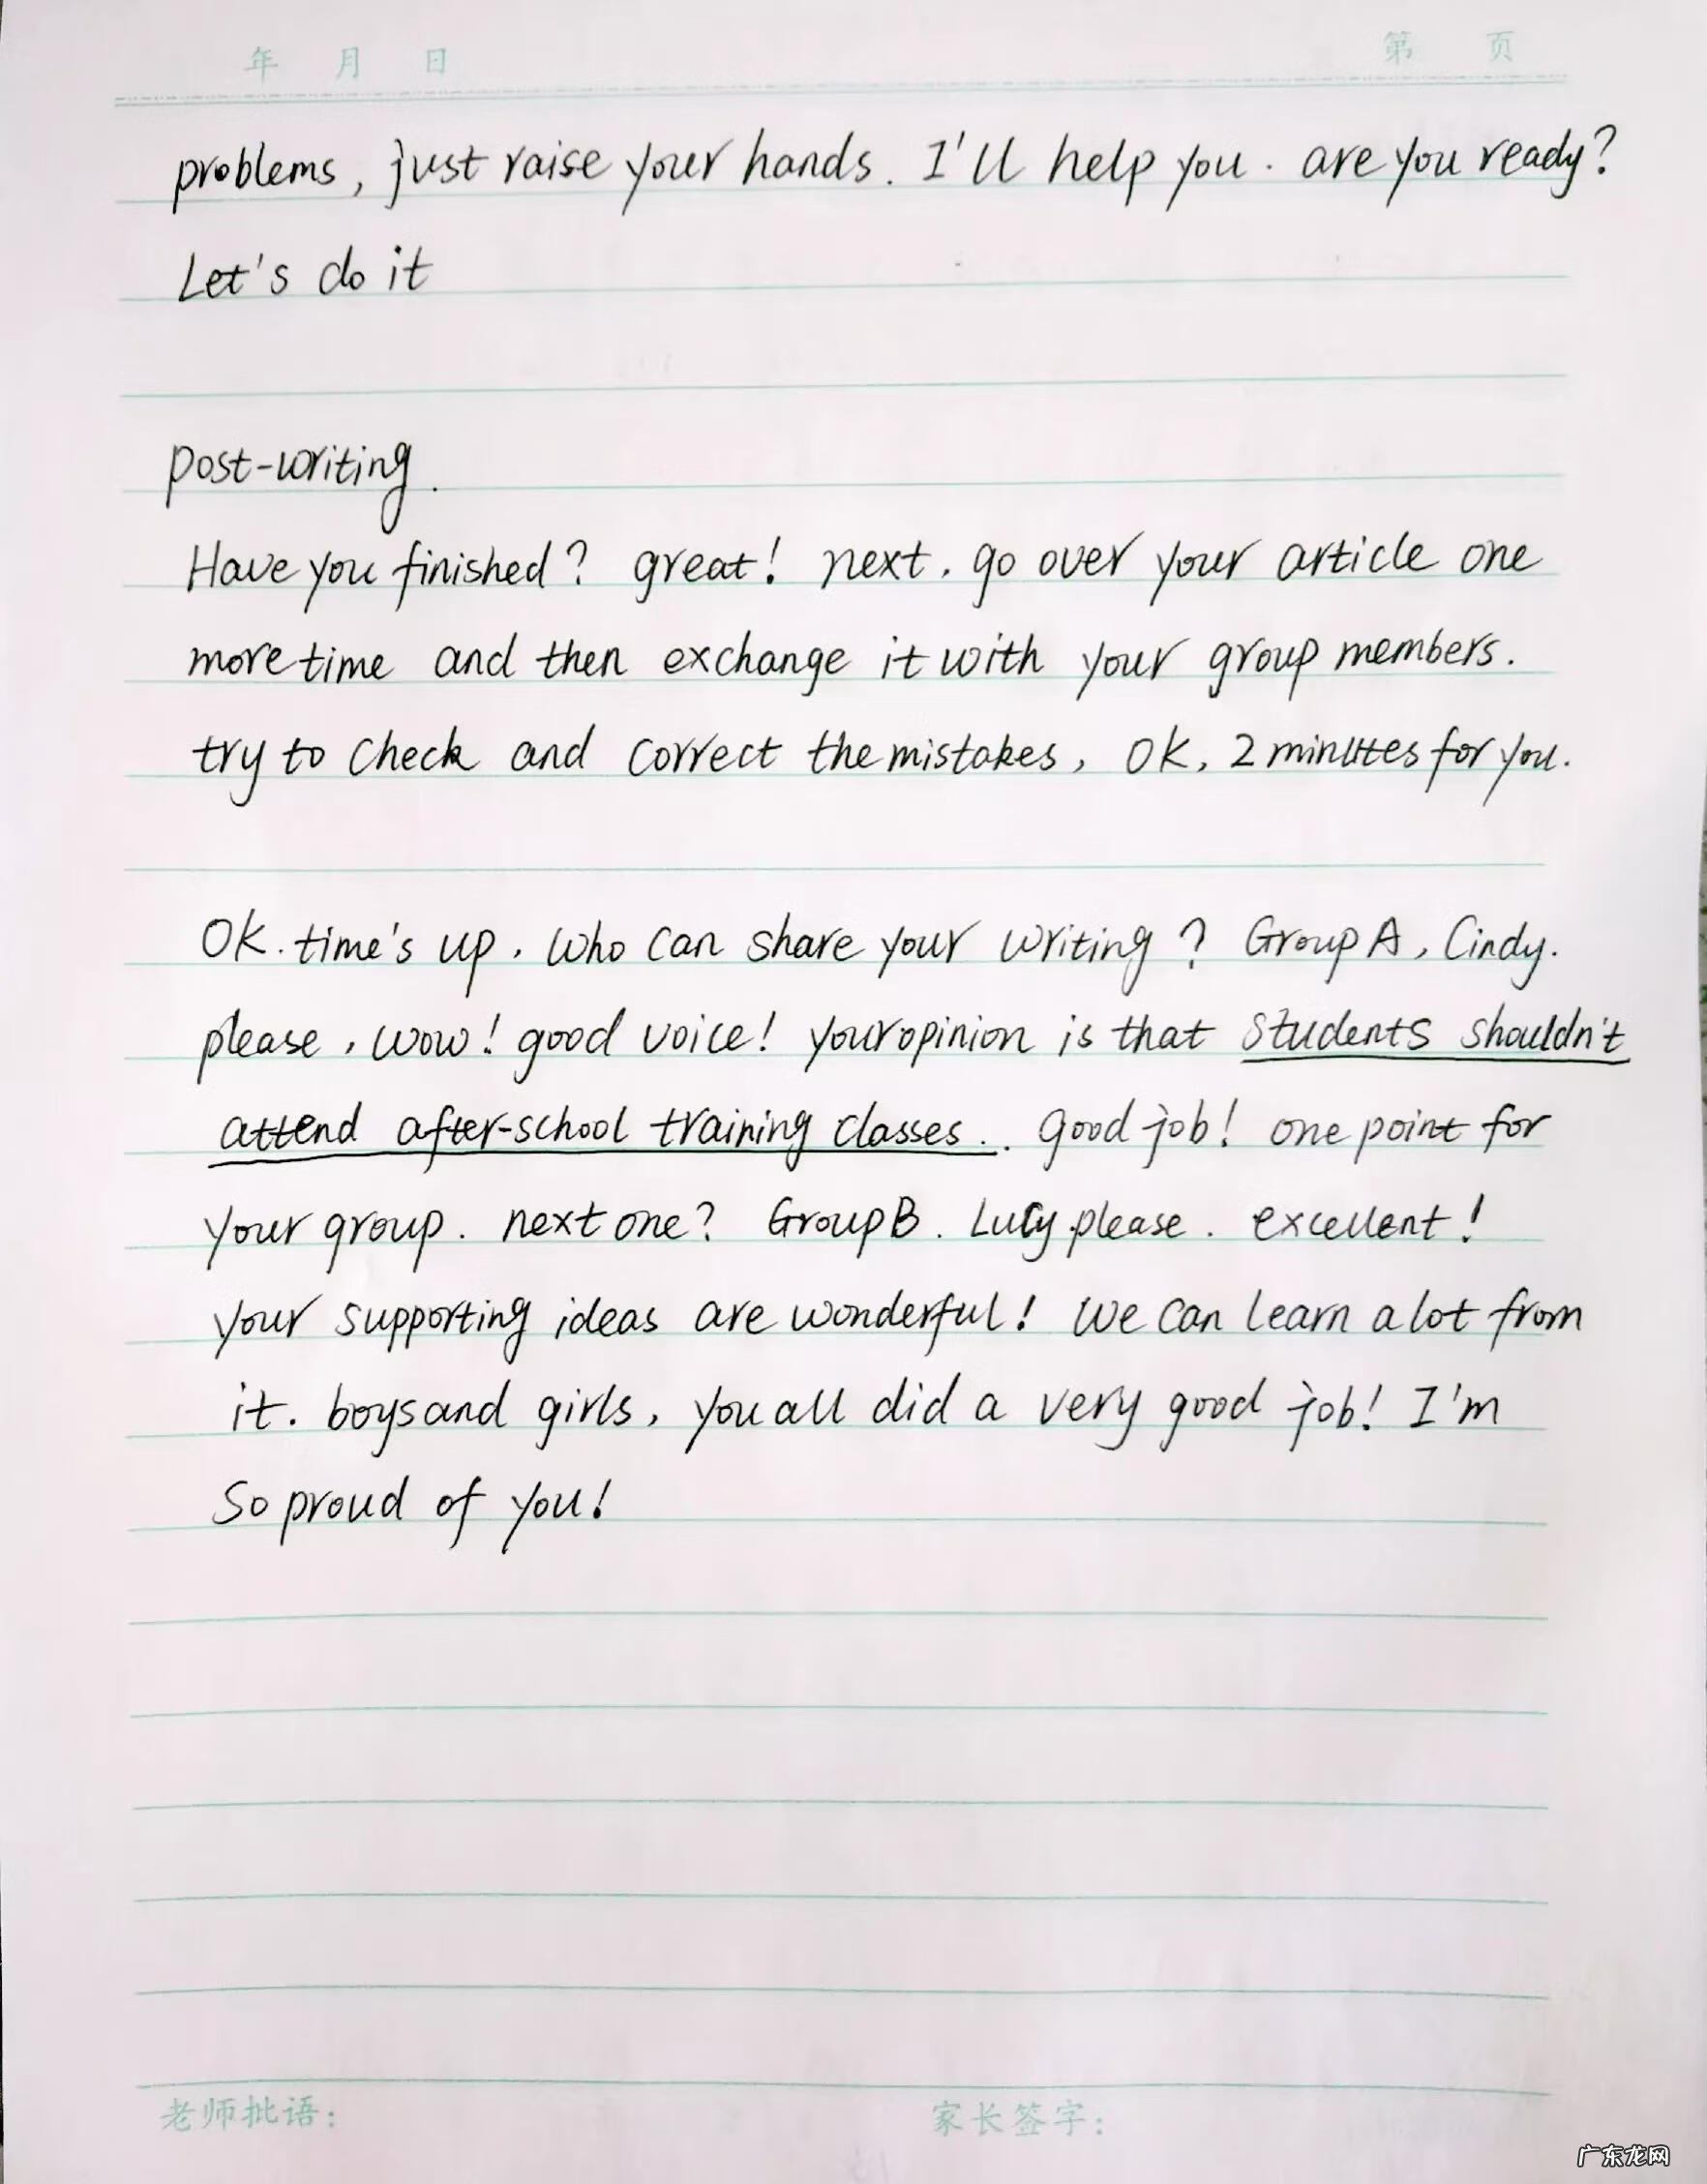 年 月 日 第 页
problems, just raise your hands. I'll help you. are you ready?
Let's do it
post-writing.
Have you finished? great! next, go over your article one
more time and then exchange it with your group members.
try to check and correct the mistakes, OK, 2 minutes for you.
OK. time's up, who can share your writing? Group A, Cindy.
please, wow! good voice! your opinion is that students shouldn't
attend after-school training classes.. good job! one point for
your group. next one? Group B. Lucy please. excellent!
your supporting ideas are wonderful! we can learn a lot from
it. boys and girls, you all did a very good job! I'm
so proud of you!
老师批语: 家长签字:
广东龙网